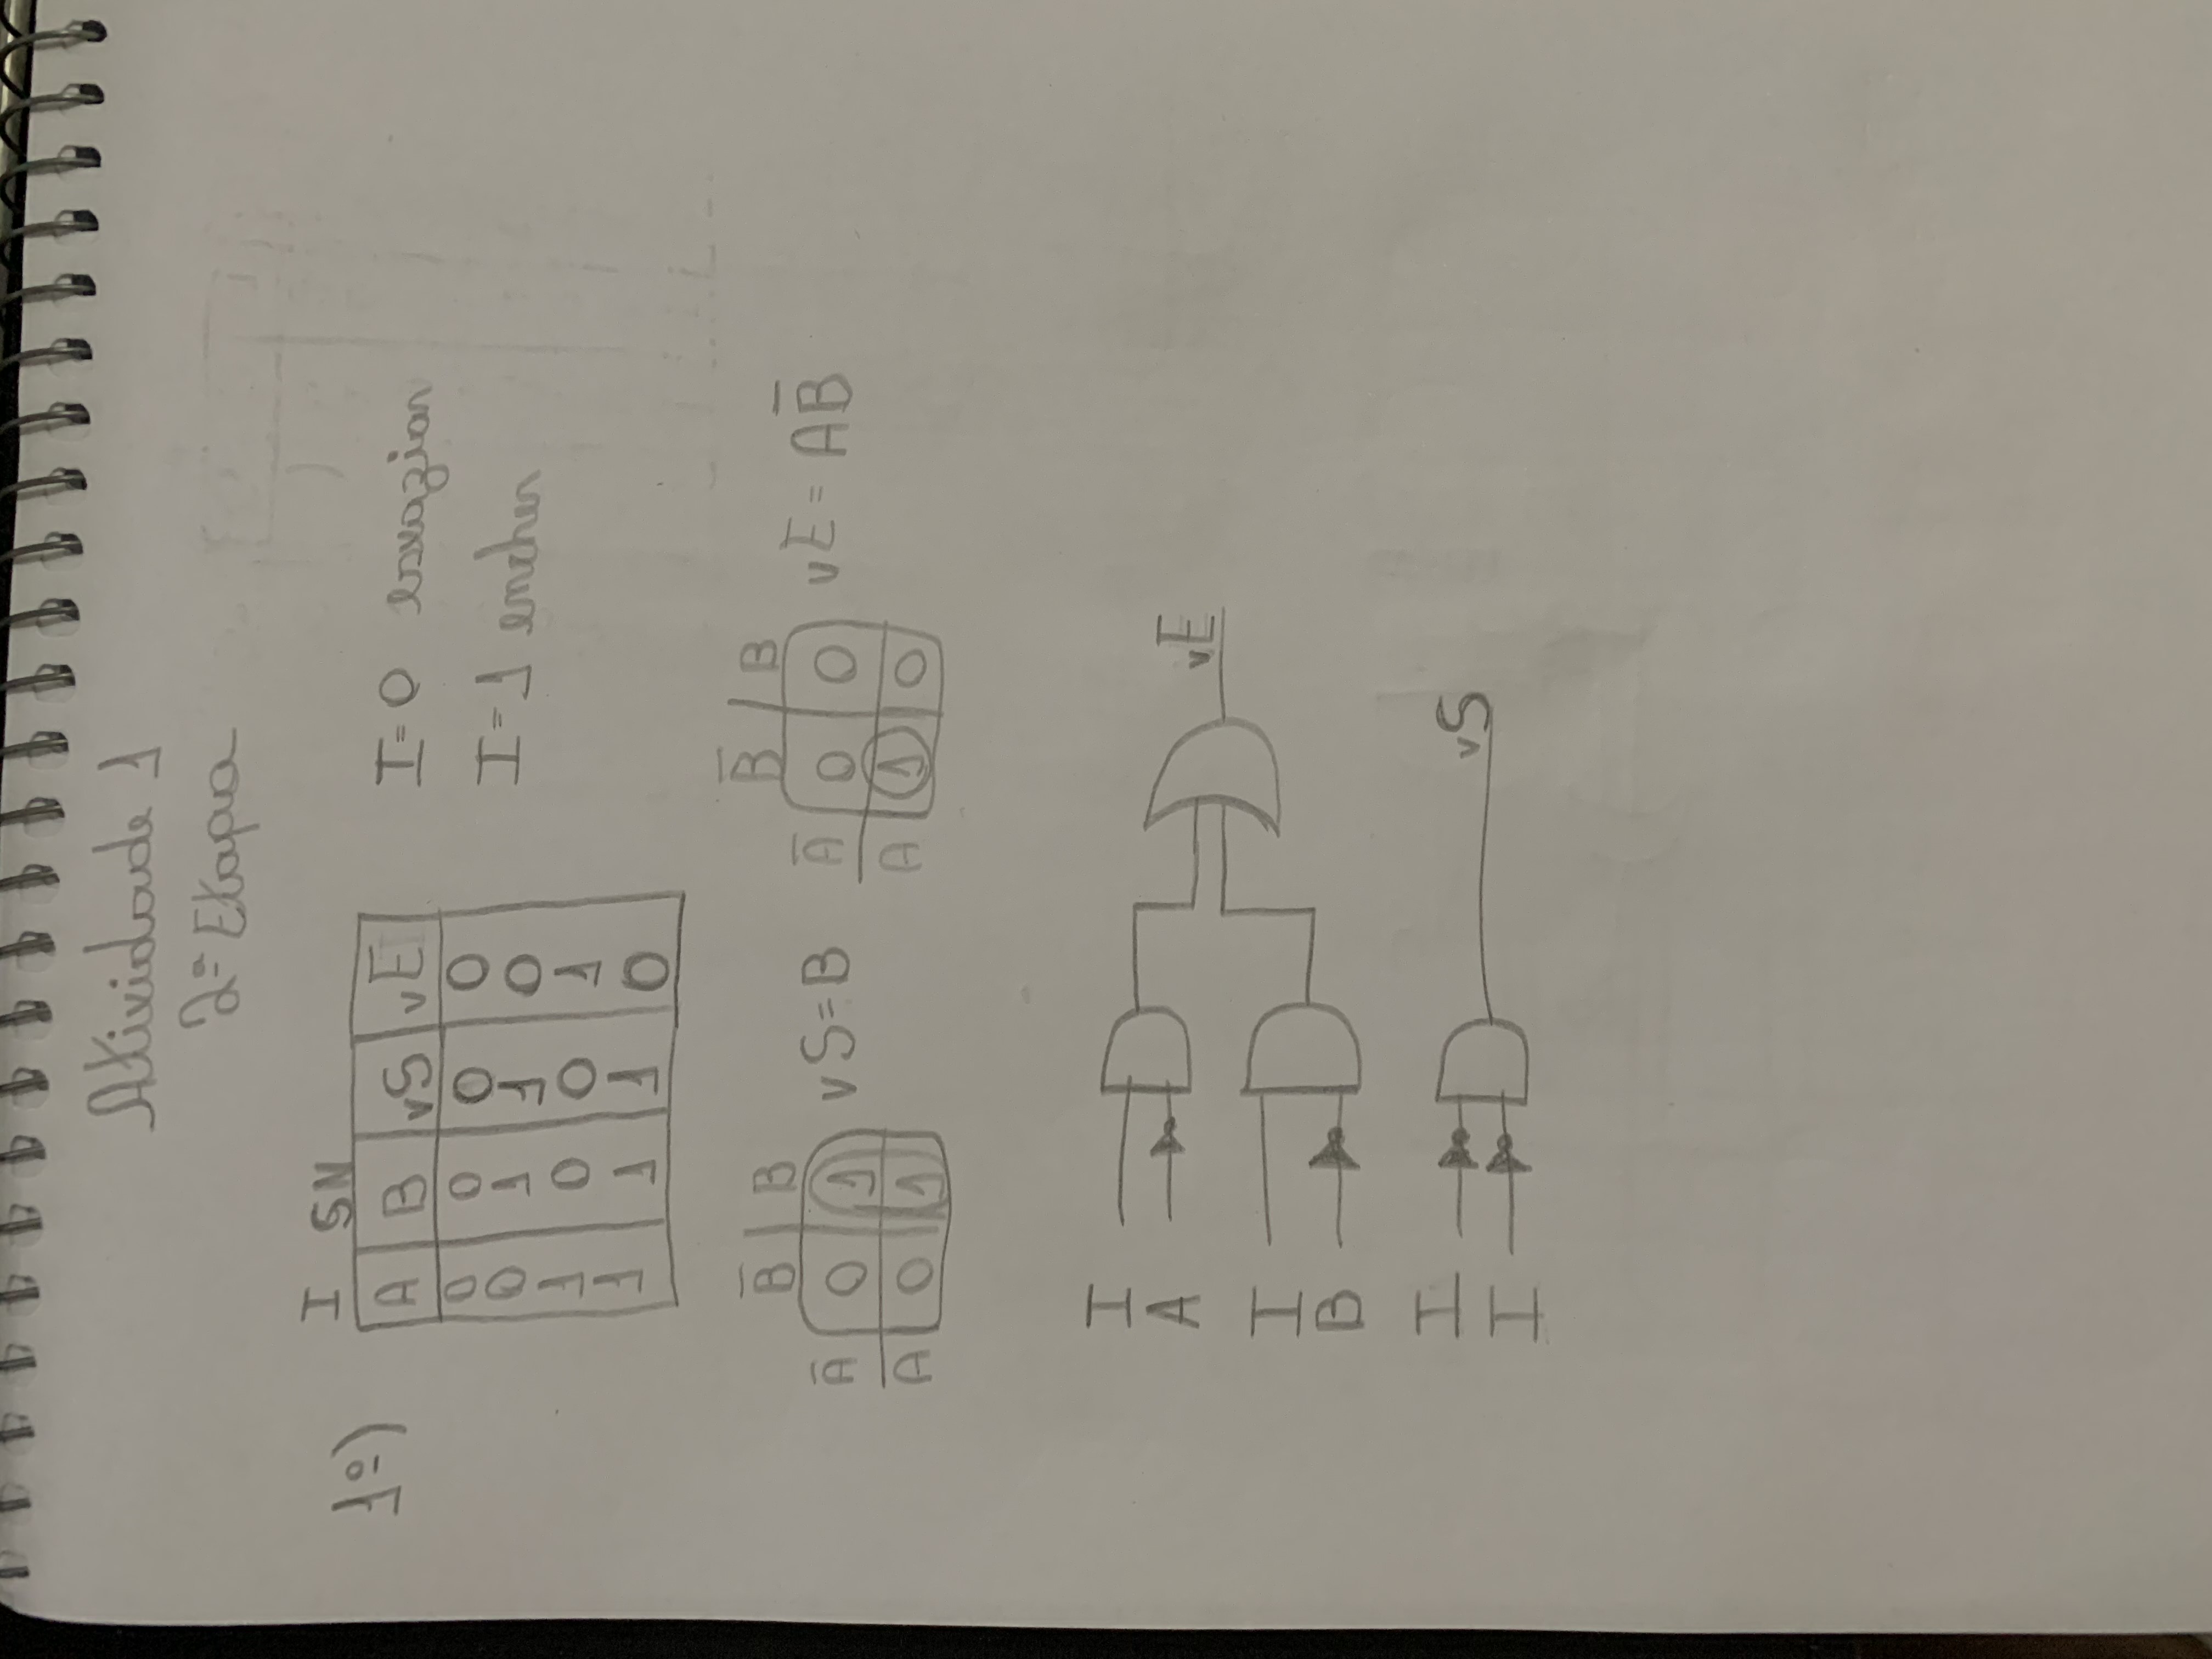 Atividade 1
2ª Etapa
1º)
I SN
A B vS vE
0 0 0 0
0 1 1 0
1 0 0 1
1 1 1 0
I=0 esvaziar
I=1 encher
B̅ B
A̅ 0 1
A 0 1
vS=B
B̅ B
A̅ 0 0
A 1 0
vE=AB̅
I
A
I
B
vE
I
I
vS